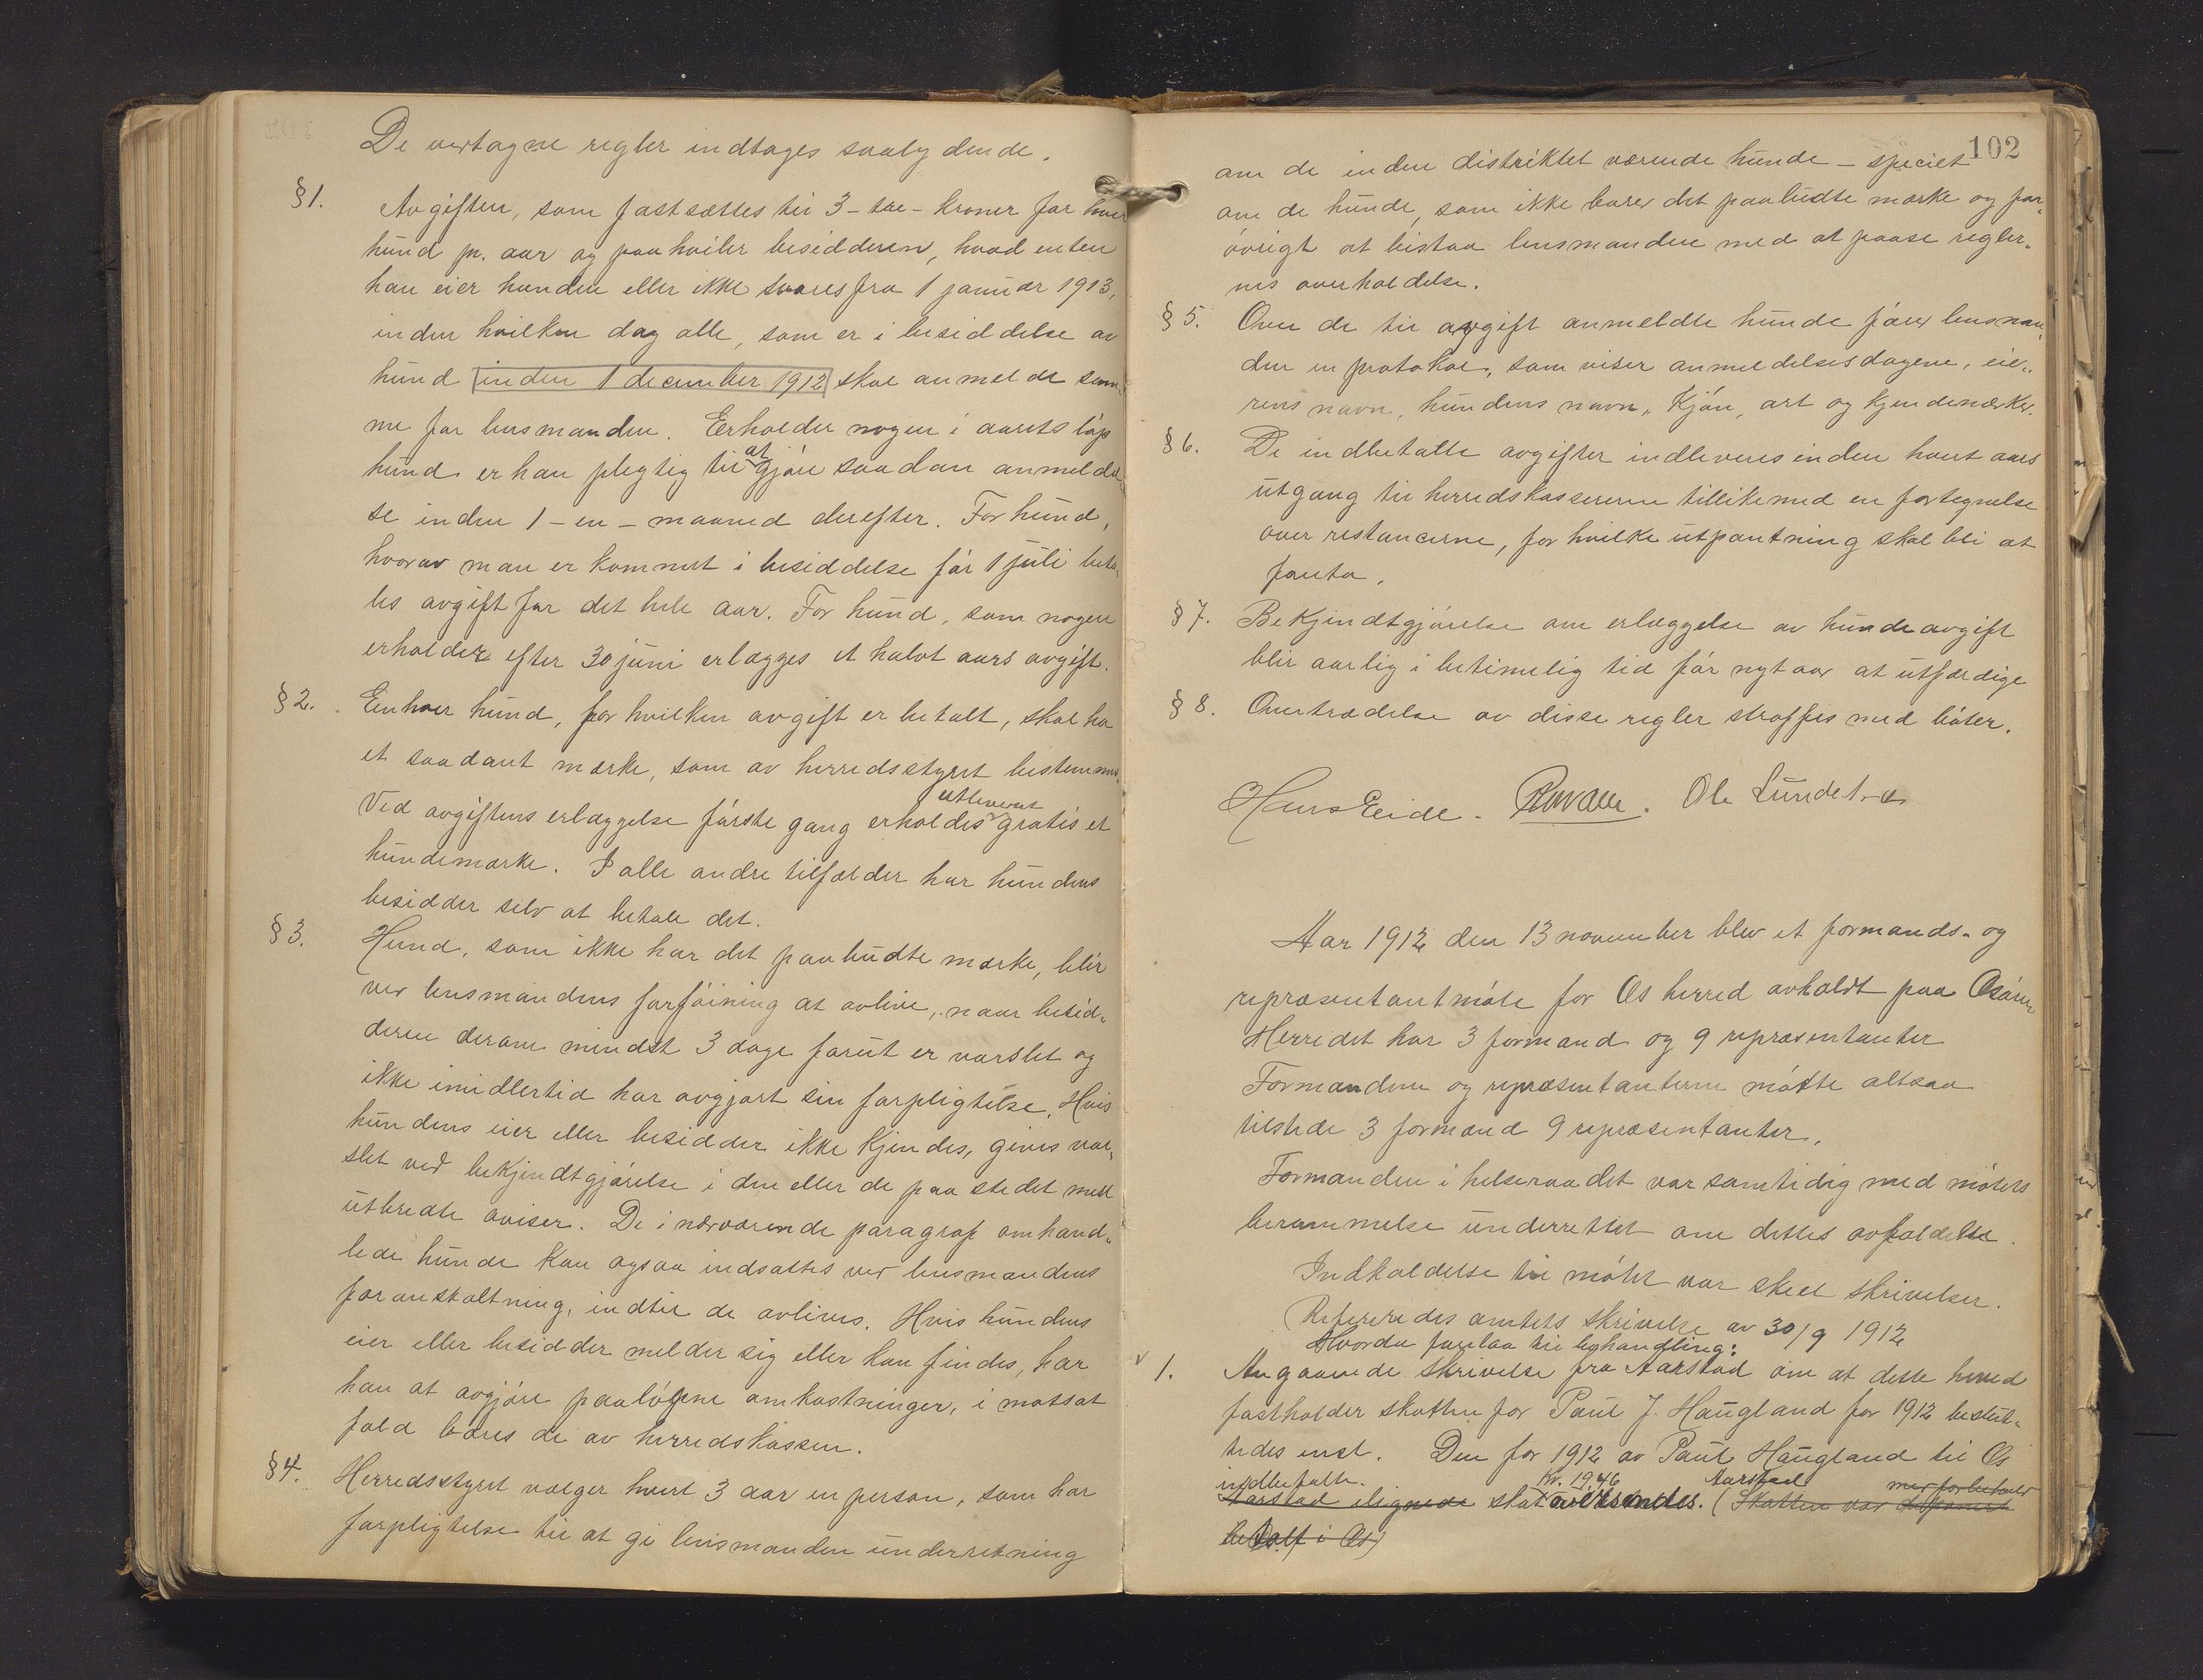 De vedtagne regler indtages saalydende.
§1. Avgiften, som fastsættes til 3 - tre - kroner for hver
hund pr. aar og paahviler besidderen, hvad enten
han eier hunden eller ikke svares fra 1 januar 1913,
inden hvilken dag alle, som er i besiddelse av
hund inden 1 december 1912 skal anmelde sam-
me for lensmanden. Erholder nogen i aarets løp
hund er han plegtig til at gjøre saadan anmeldel
se inden 1 - en - maaned derefter. For hund,
hvorav man er kommet i besiddelse før 1 juli beta-
les avgift for det hele aar. For hund, som nogen
erholder efter 30 juni erlægges et halvt aars avgift.
§2. Enhver hund, for hvilken avgift er betalt, skal ha
et saadant mærke, som av herredsstyret bestemmes.
Ved avgiftens erlæggelse første gang erholdes utleveret gratis et
hundemærke. I alle andre tilfælder har hundens
besidder selv at betale det.
§3. Hund, som ikke har det paabudte mærke, blir
ved lensmandens forføining at avlive, naar besid-
deren derom mindst 3 dage forut er varslet og
ikke imidlertid har avgjort sin forpligtelse. Hvis
hundens eier eller besidder ikke kjendes, gives var-
slet ved bekjendtgjørelse i den eller de paa stedet mest
utbredte aviser. De i nærværende paragraf omhand-
lede hunde kan ogsaa indsættes ved lensmandens
foranstaltning, indtil de avlives. Hvis hundens
eier eller besidder melder sig eller kan findes, har
han at avgjøre paaløpne omkostninger, i motsat
fald bæres de av herredskassen.
§4. Herredsstyret vælger hvert 3 aar en person, som har
forpligtelse til at gi lensmanden underretning
102
om de inden distriktet værende hunde - specielt
om de hunde, som ikke bærer det paabudte mærke og for-
øvrigt at bistaa lensmanden med at paase regler-
nes overholdelse.
§5. Over de til avgift anmeldte hunde fører lensman-
den en protokol, som viser anmeldelsesdagene, eie-
rens navn, hundens navn, Kjøn, art og kjendemærker.
§6. De indbetalte avgifter indleveres inden hvert aars
utgang til herredskassereren tillikemed en fortegnelse
over restancerne, for hvilke utpantning skal bli at
foreta.
§7. Bekjendtgjørelse om erlæggelse av hundeavgift
blir aarlig i betimelig tid før nytaar at utfærdige
§8. Overtrædelse av disse regler straffes med bøter.
Hans Eide. Ole Lundetræ
Aar 1912 den 13 november blev et formands- og
repræsentantmøte for Os herred avholdt paa Osøren
Herredet har 3 formænd og 9 repræsentanter
Formændene og repræsentanterne møtte altsaa
tilstede 3 formænd 9 repræsentanter.
Formanden i helseraadet var samtidig med møtets
berammelse underrettet om dettes avholdelse.
Indkaldelse til møtet var skeet skrivelser.
Refereredes amtets skrivelse av 30/9 1912
Hvorda forelaa til behandling:
1. Angaaende skrivelse fra Aarstad om at dette herred
fastholder skatten for Paul J. Haugland for 1912 beslut-
tedes enst. Den for 1912 av Paul Haugland til Os
indbetalte Kr. 19,46 Aarstad mer forbehold
Aarstad ilignede skat oversendes. (Skatten var deponeret
betalt i Os)